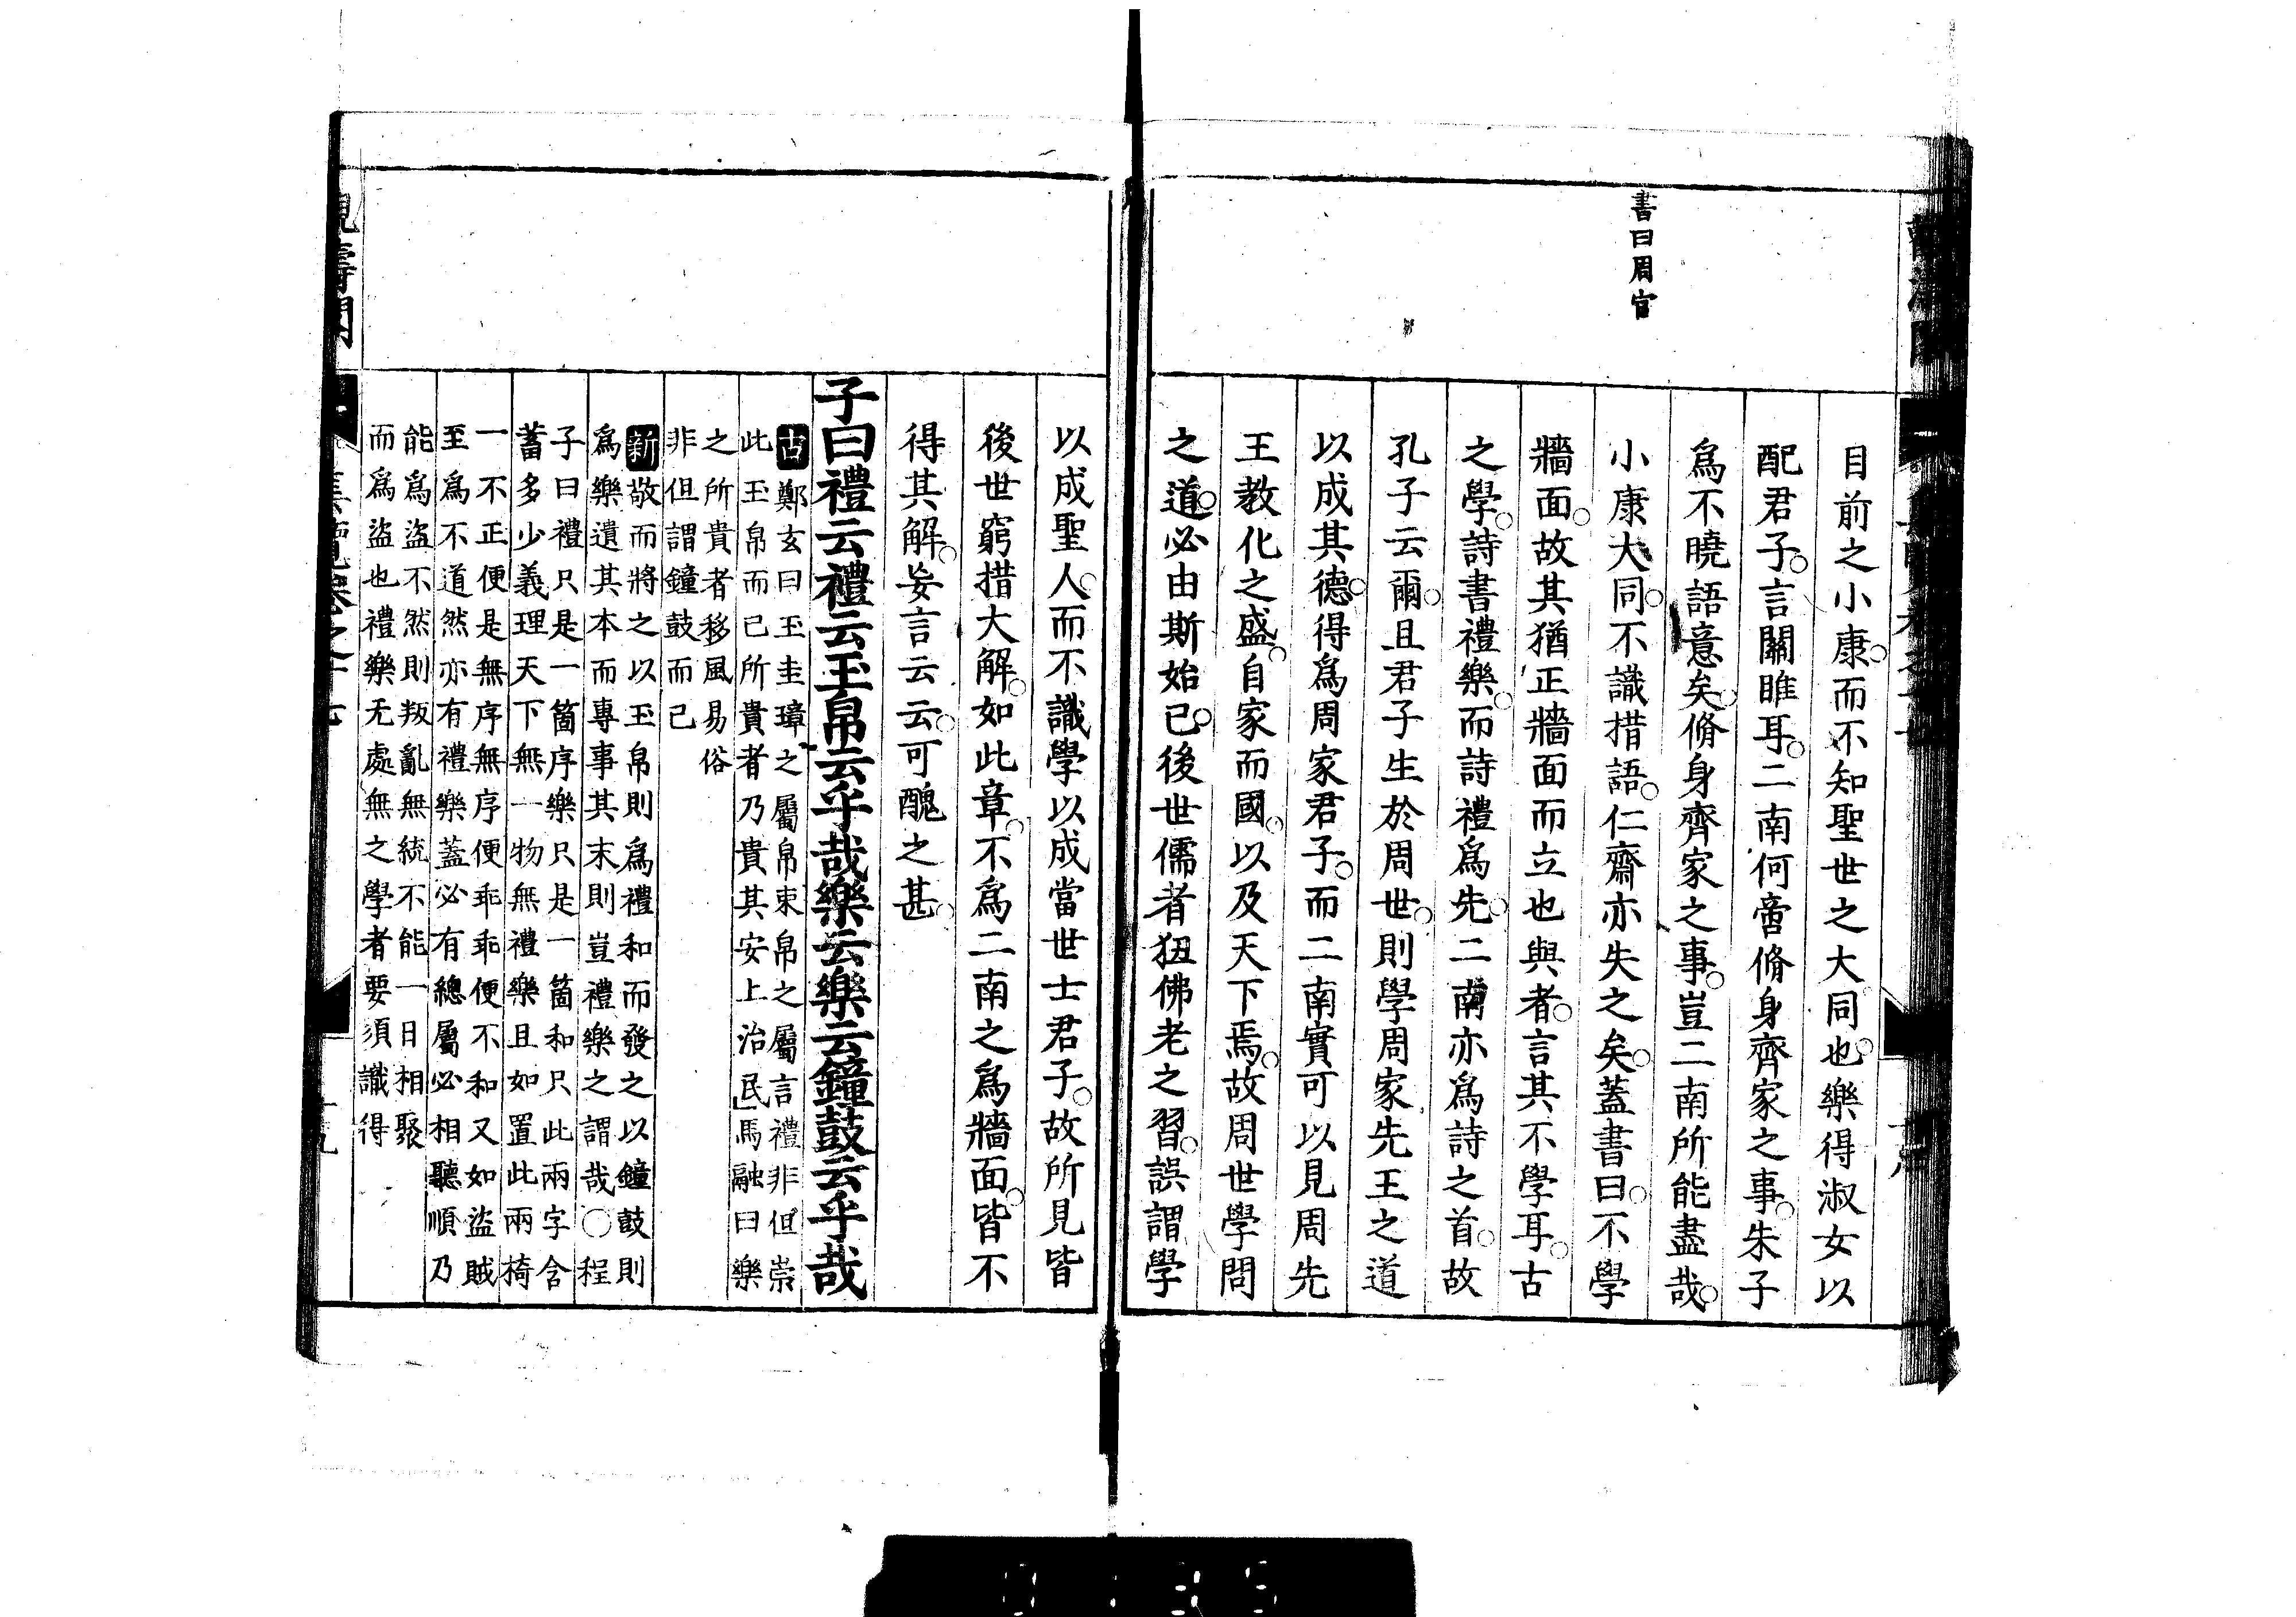 書曰周官
目前之小康而不知聖世之大同也樂得淑女以
配君子言關雎耳二南何啻脩身齊家之事朱子
爲不曉語意矣脩身齊家之事豈二南所能盡哉
小康大同不識措語仁齋亦失之矣蓋書曰不學
牆面故其猶正牆面而立也與者言其不學耳古
之學詩書禮樂而詩禮爲先二南亦爲詩之首故
孔子云爾且君子生於周世則學周家先王之道
以成其德得爲周家君子而二南實可以見周先
王教化之盛自家而國以及天下焉故周世學問
之道必由斯始已後世儒者狃佛老之習誤謂學
以成聖人而不識學以成當世士君子故所見皆
後世窮措大解如此章不爲二南之爲牆面皆不
得其解妄言云云可醜之甚
子曰禮云禮云玉帛云乎哉樂云樂云鐘鼓云乎哉
古鄭玄曰玉圭璋之屬帛束帛之屬言禮非但崇
此玉帛而已所貴者乃貴其安上治民馬融曰樂
之所貴者移風易俗
非但謂鐘鼓而已
新敬而將之以玉帛則爲禮和而發之以鐘鼓則
爲樂遺其本而專事其末則豈禮樂之謂哉○程
子曰禮只是一箇序樂只是一箇和只此兩字含
蓄多少義理天下無一物無禮樂且如置此兩椅
一不正便是無序無序便乖乖便不和又如盜賊
至爲不道然亦有禮樂蓋必有總屬必相聽順乃
能爲盜不然則叛亂無統不能一日相聚
而爲盜也禮樂无處無之學者要須識得